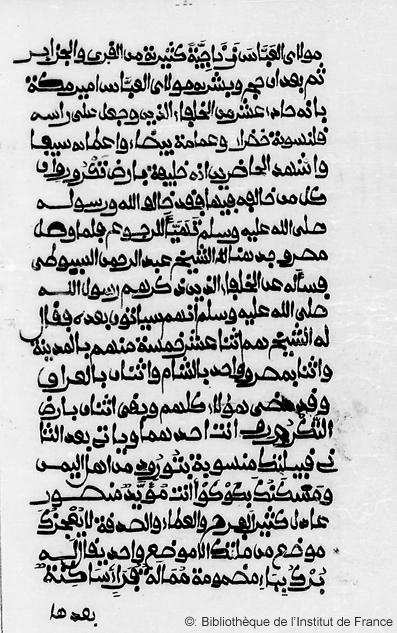 مولاى العباس فراحية كثيرة من الفرى والجزاير
ثم بعد ان حج وبشره مولاى العباس امير مكة
بانه حادى عشر من الخلفاء الذين وجعل على راسه
فلنسوة خضراء وعمامة بيضاء واعطاه سيفا
واشهد الحاضرين انه خليفة بارض تكرور وان
كل من خالفه فيها ففد خالف الله ورسوله
صلى الله عليه وسلم تهيا للرجوع فلما وصل
مصر وجد هناك الشيخ عبد الرحمن السيوطى
فسأله عن الخلفاء الذين ذكرهم رسول الله
صلى الله عليه وسلم انهم سياتون بعده ففال
له الشيخ هم اثنا عشر خمسة منهم بالمدينة
واثنا بمصر وواحد بالشام واثنان بالعراق
وفد مضى هولاء كلهم وبفى اثنان بارض
التكرور انت احدهما وياتى بعد الثا
نى فبيلتك منسوبة بتورود من اهل اليمن
ومسكنك بكوكوا انت مؤيد منصور
عادل كثير العلم والعطاء والصدفة لا يعجزك
موضع من ملكك الا موضع واحد يفال له
بركُ بباء مضمومة ممالة فراء ساكنة
بعدها
©: Bibliothèque de l'Institut de France